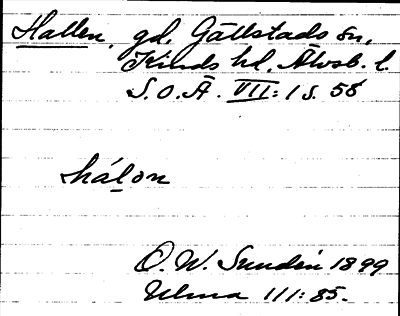 Hallen, gd, Gällstads sn,
Kinds hd, Älvsb. l.
S.O.Ä. VII:1 s. 58
hálon
O. W. Sundén 1899
Ulma 111:85.